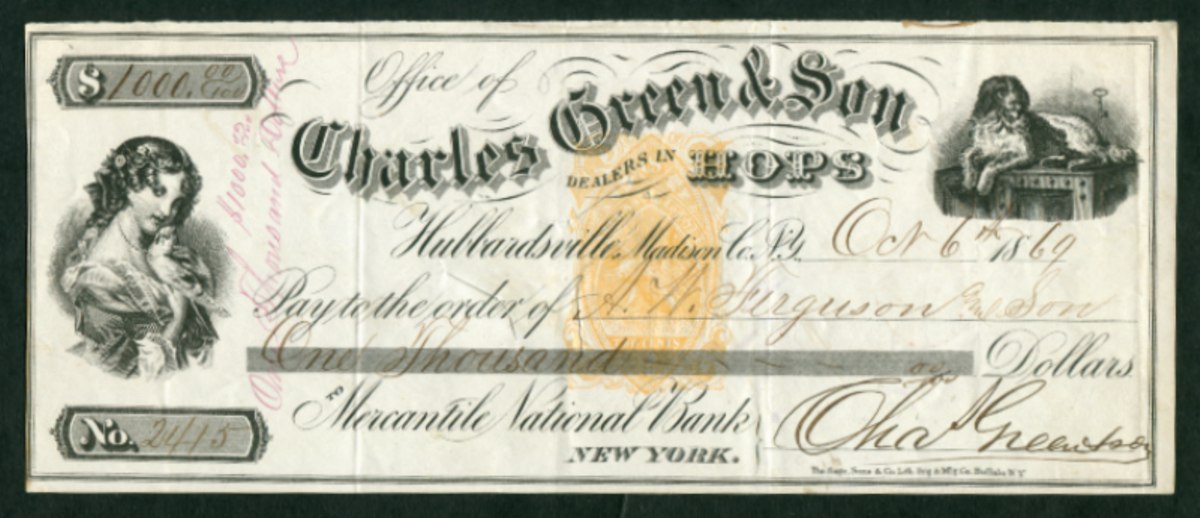 $1000.00/100
Office of
Charles Green & Son
DEALERS IN HOPS
$1000.00
One Thousand Dollars
Hubbardsville, Madison Co. N.Y. Oct 6th 1869
Pay to the order of A. W. Ferguson and Son
One Thousand Dollars
TO Mercantile National Bank
NEW YORK.
Chas Green & Son
No. 2415
The Sage, Sons & Co. Lith. Prtg & M'f'g Co. Buffalo N.Y.